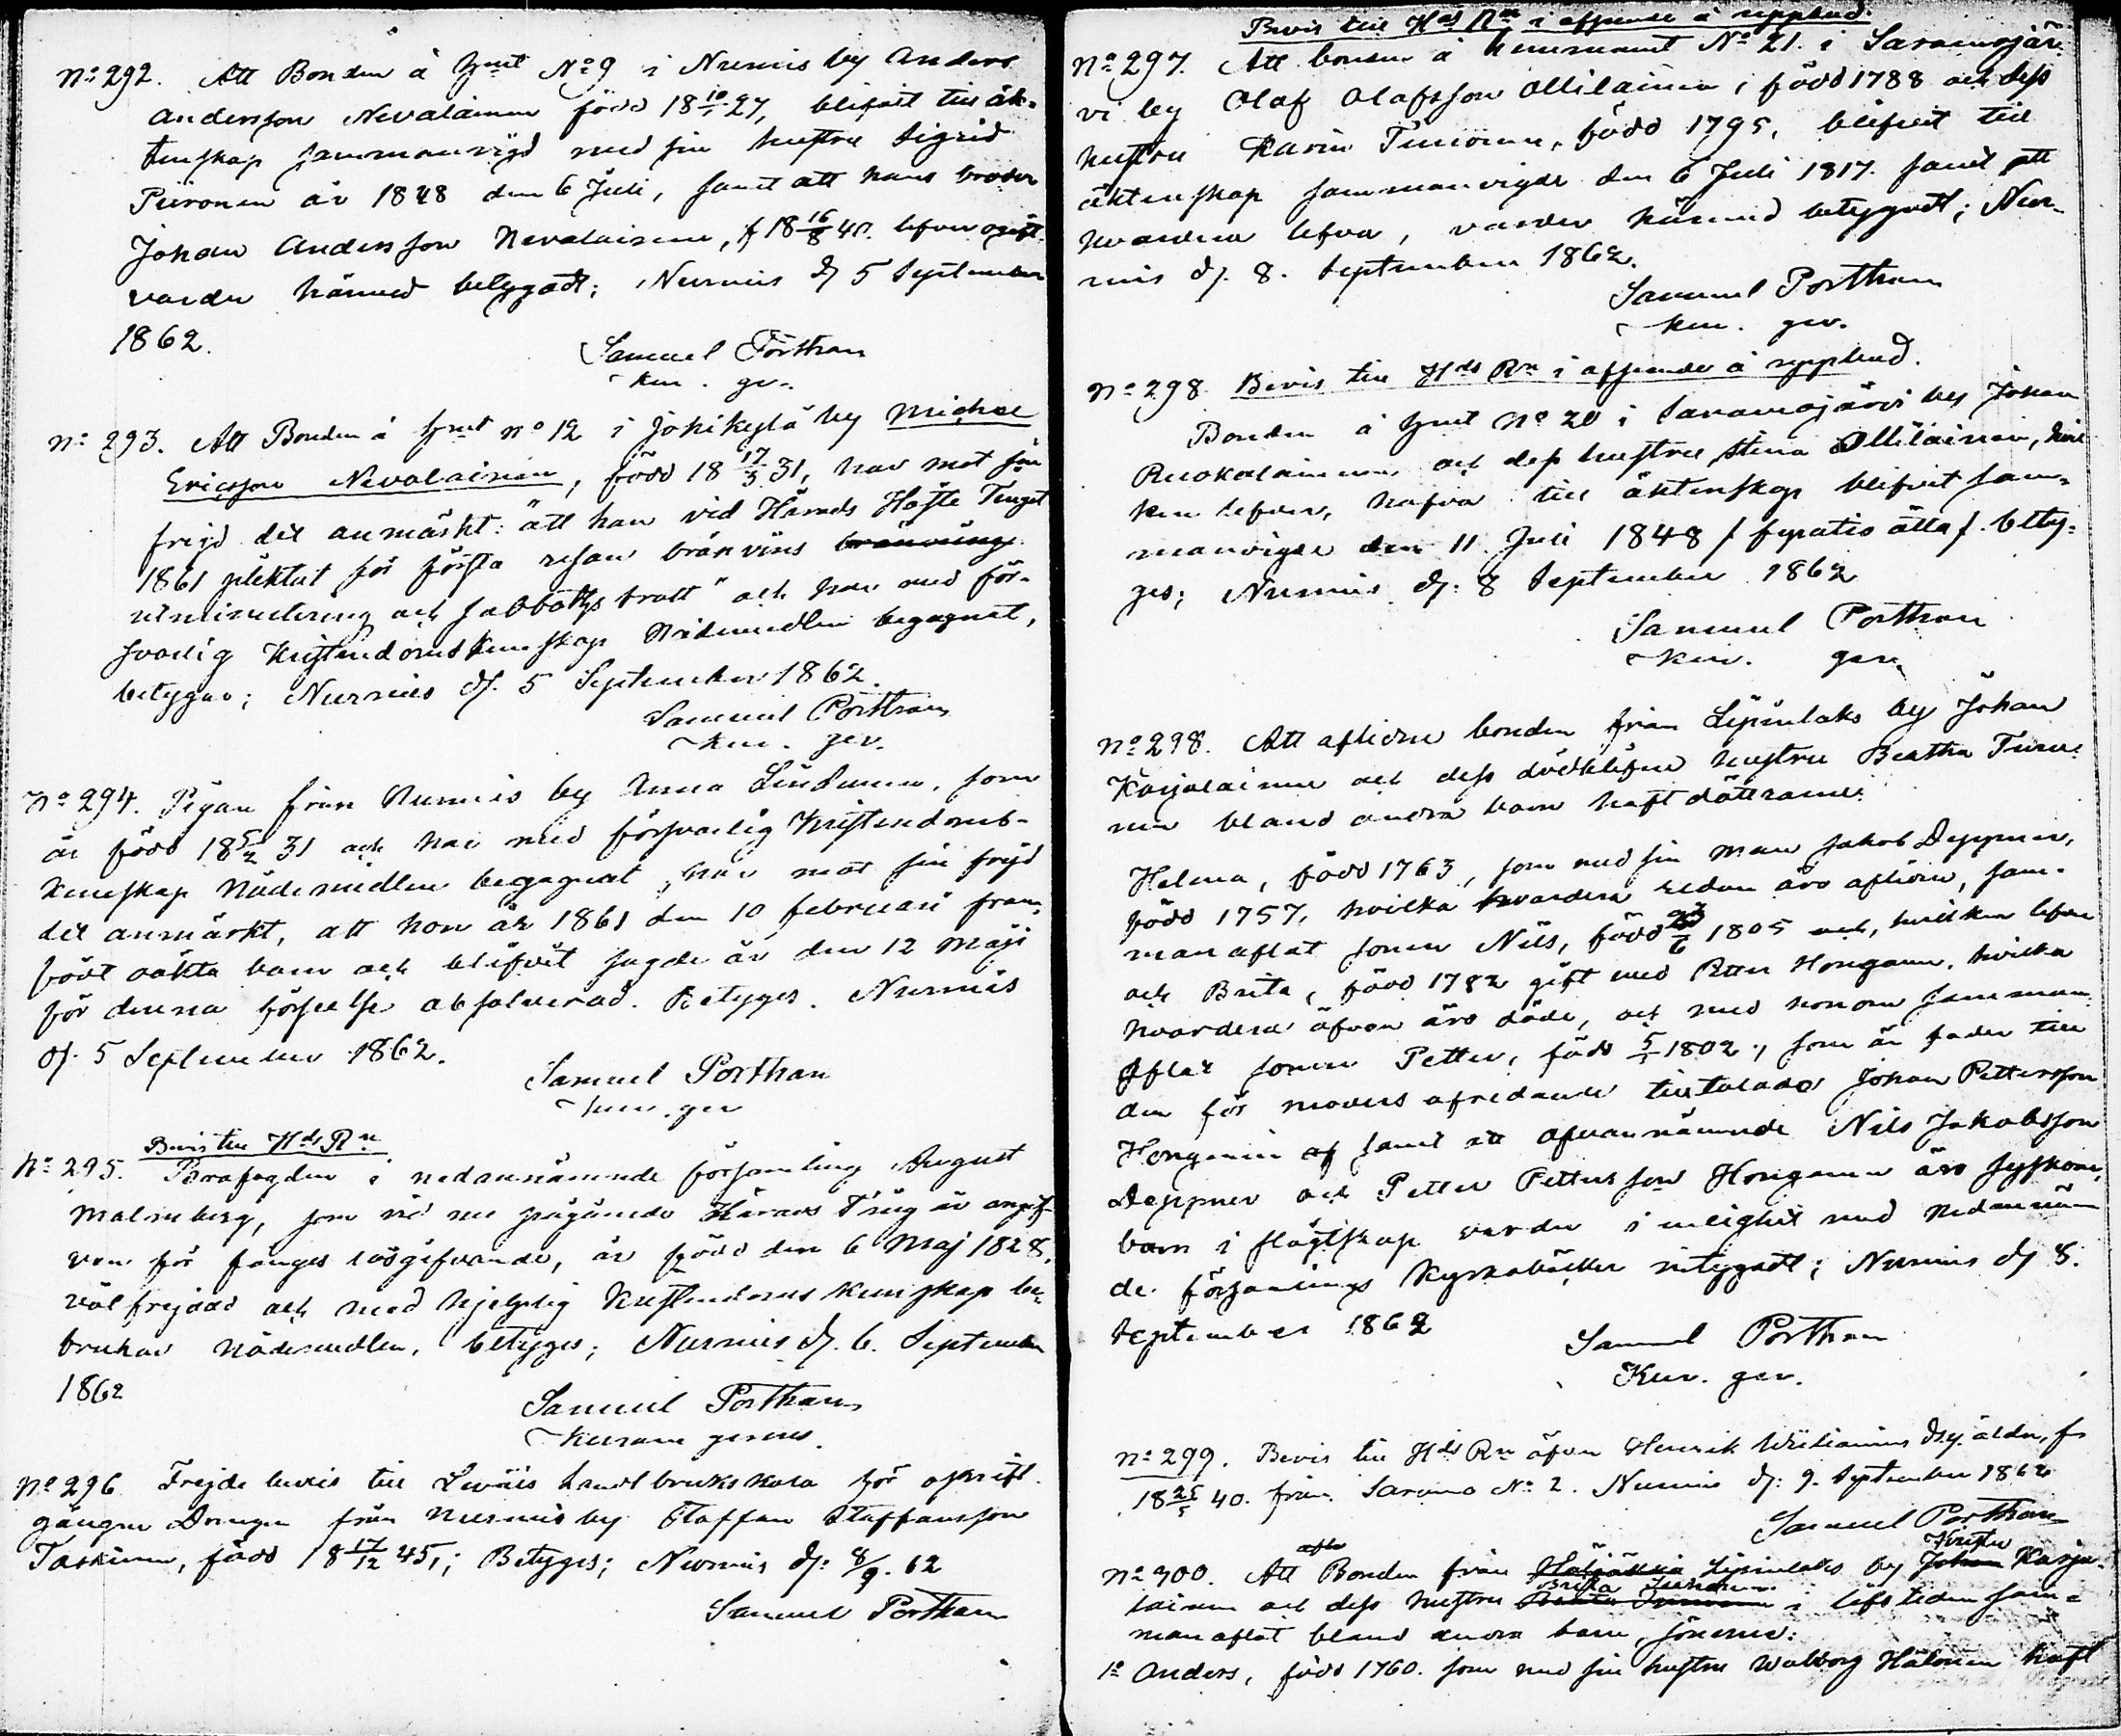 No 292. Att Bonden å Hmt No 9 i Nurmis by Anders
Andersson Nevalainen född 18 10/1 27, blifvit till äk-
tenskap sammanvigd med sin hustru Sigrid
Piironen år 1848 den 6 Juli, samt att hans broder
Johan Andersson Nevalainen, f 18 16/8 40. lefver ogift
varder härmed betygadt; Nurmis d. 5 September
1862.
Samuel Porthan
km. gev.
No 293. Att Bonden å Hmt No 12 i Jokikylä by Michel
Ericsson Nevalainen, född 18 17/3 31, har mot sin
frejd det anmärkt: "att han vid Härads Höste Tinget
1861 pliktat för första resan bränvins
utminutering och sabbats brott" och har med för-
svarlig Kristendomskunskap Nådemedlen begagnat,
betygar; Nurmis d. 5 September 1862.
Samuel Porthan
km. gev.
No 294. Pigan från Nurmis by Anna Lindunen, som
är född 18 5/2 31 och har med försvarlig Kristendoms-
kunskap Nådemedlen begagnat, har mot sin frejd
det anmärkt, att hon år 1861 den 10 februari fram-
födt oäkta barn och blifvit sagde år den 12 Maji
för denna förseelse absolverad. Betyges. Nurmis
d. 5 September 1862.
Samuel Porthan
km. gev
Bevis till Hds Rn
No 295. Brofogden i nedannämnde församling August
Malmberg, som vid nu pågående Härads Ting är angif-
ven för fånges lösgifvande, är född den 6 Maj 1828,
väl frejdad och med hjelplig Kristendoms kunskap be-
brukar nådemedlen, betyges; Nurmis d. 6. September
1862
Samuel Porthan
No 296 Frejde bevis till Leväis Landtbruksskola för afskrift
gångne Drengen från Nurmis by Staffan Staffansson
Taskinen, född 18 17/12 45,; Betyges; Nurmis d: 8/9. 62
Samuel Porthan
Bevis till Hds Rn i afseende å uppbud.
No 297. Att bonden å hemmanet No 21. i Saramojär-
vi by Olof Olofsson Ollilainen, född 1788 och dess
hustru Karin Turunen, född 1795, blifvit till
äktenskap sammanvigde den 6 Juli 1817. samt att
hvardera lefva, varder härmed betygadt; Nur-
mis d. 8. September 1862.
Samuel Porthan
km. gev.
No 298. Bevis till Hds Rn i afseende å uppbud.
Bonden å Hmt No 20 i Saramojärvi by Johan
Ruokolainen och dess hustru Stina Ollilainen, hvil-
ken lefver, hafva till äktenskap blifvit sam-
manvigde den 11 Juli 1848 / fyratio åtta /. bety-
ges; Nurmis d: 8 September 1862
Samuel Porthan
km. gev.
No 298. Att aflidne bonden från Lipinlaks by Johan
Karjalainen och dess dödblifne hustru Beatha Turu-
nen bland andra barn haft döttrarne:
Helena, född 1763, som med sin man Jakob Deppner,
född 1757, hvilka hvardera redan äro aflidne, sam-
manaflat sonen Nils, född 1805 och, hvilken lefver
och Brita, född 1782 gift med Petter Honganen, hvilka
hvardera äfven äro döde, och med honom samman
aflat sonen Petter, född 5/1 1802., som är fader till
den för mövres afredande tilltalade Johan Pettersson
Honganen af samt att ofvannämnde Nils Jakobsson
Deppner och Petter Pettersson Honganen äro syskone
barn i slägtskap varder i enlighet med nedannämn
de församlings kyrkoböcker intygadt; Nurmis d 8.
September 1862
Samuel Porthan
Km. gev.
No 299. Bevis till Hds Rn öfver Henrik Wäliaminus åldr, f
18 25/5 40. från Saramo No 2. Nurmis d: 9. September 1862
Samuel Porthan
afl. Krister
No 300. Att Bonden från Lipinlaks by Johan Karja-
Brita Turunen
lainen och dess hustru i lifstiden sam-
manaflat bland andra barn, sönerne:
1o Anders, född 1760. som med sin hustru Walborg Hälvinen haft